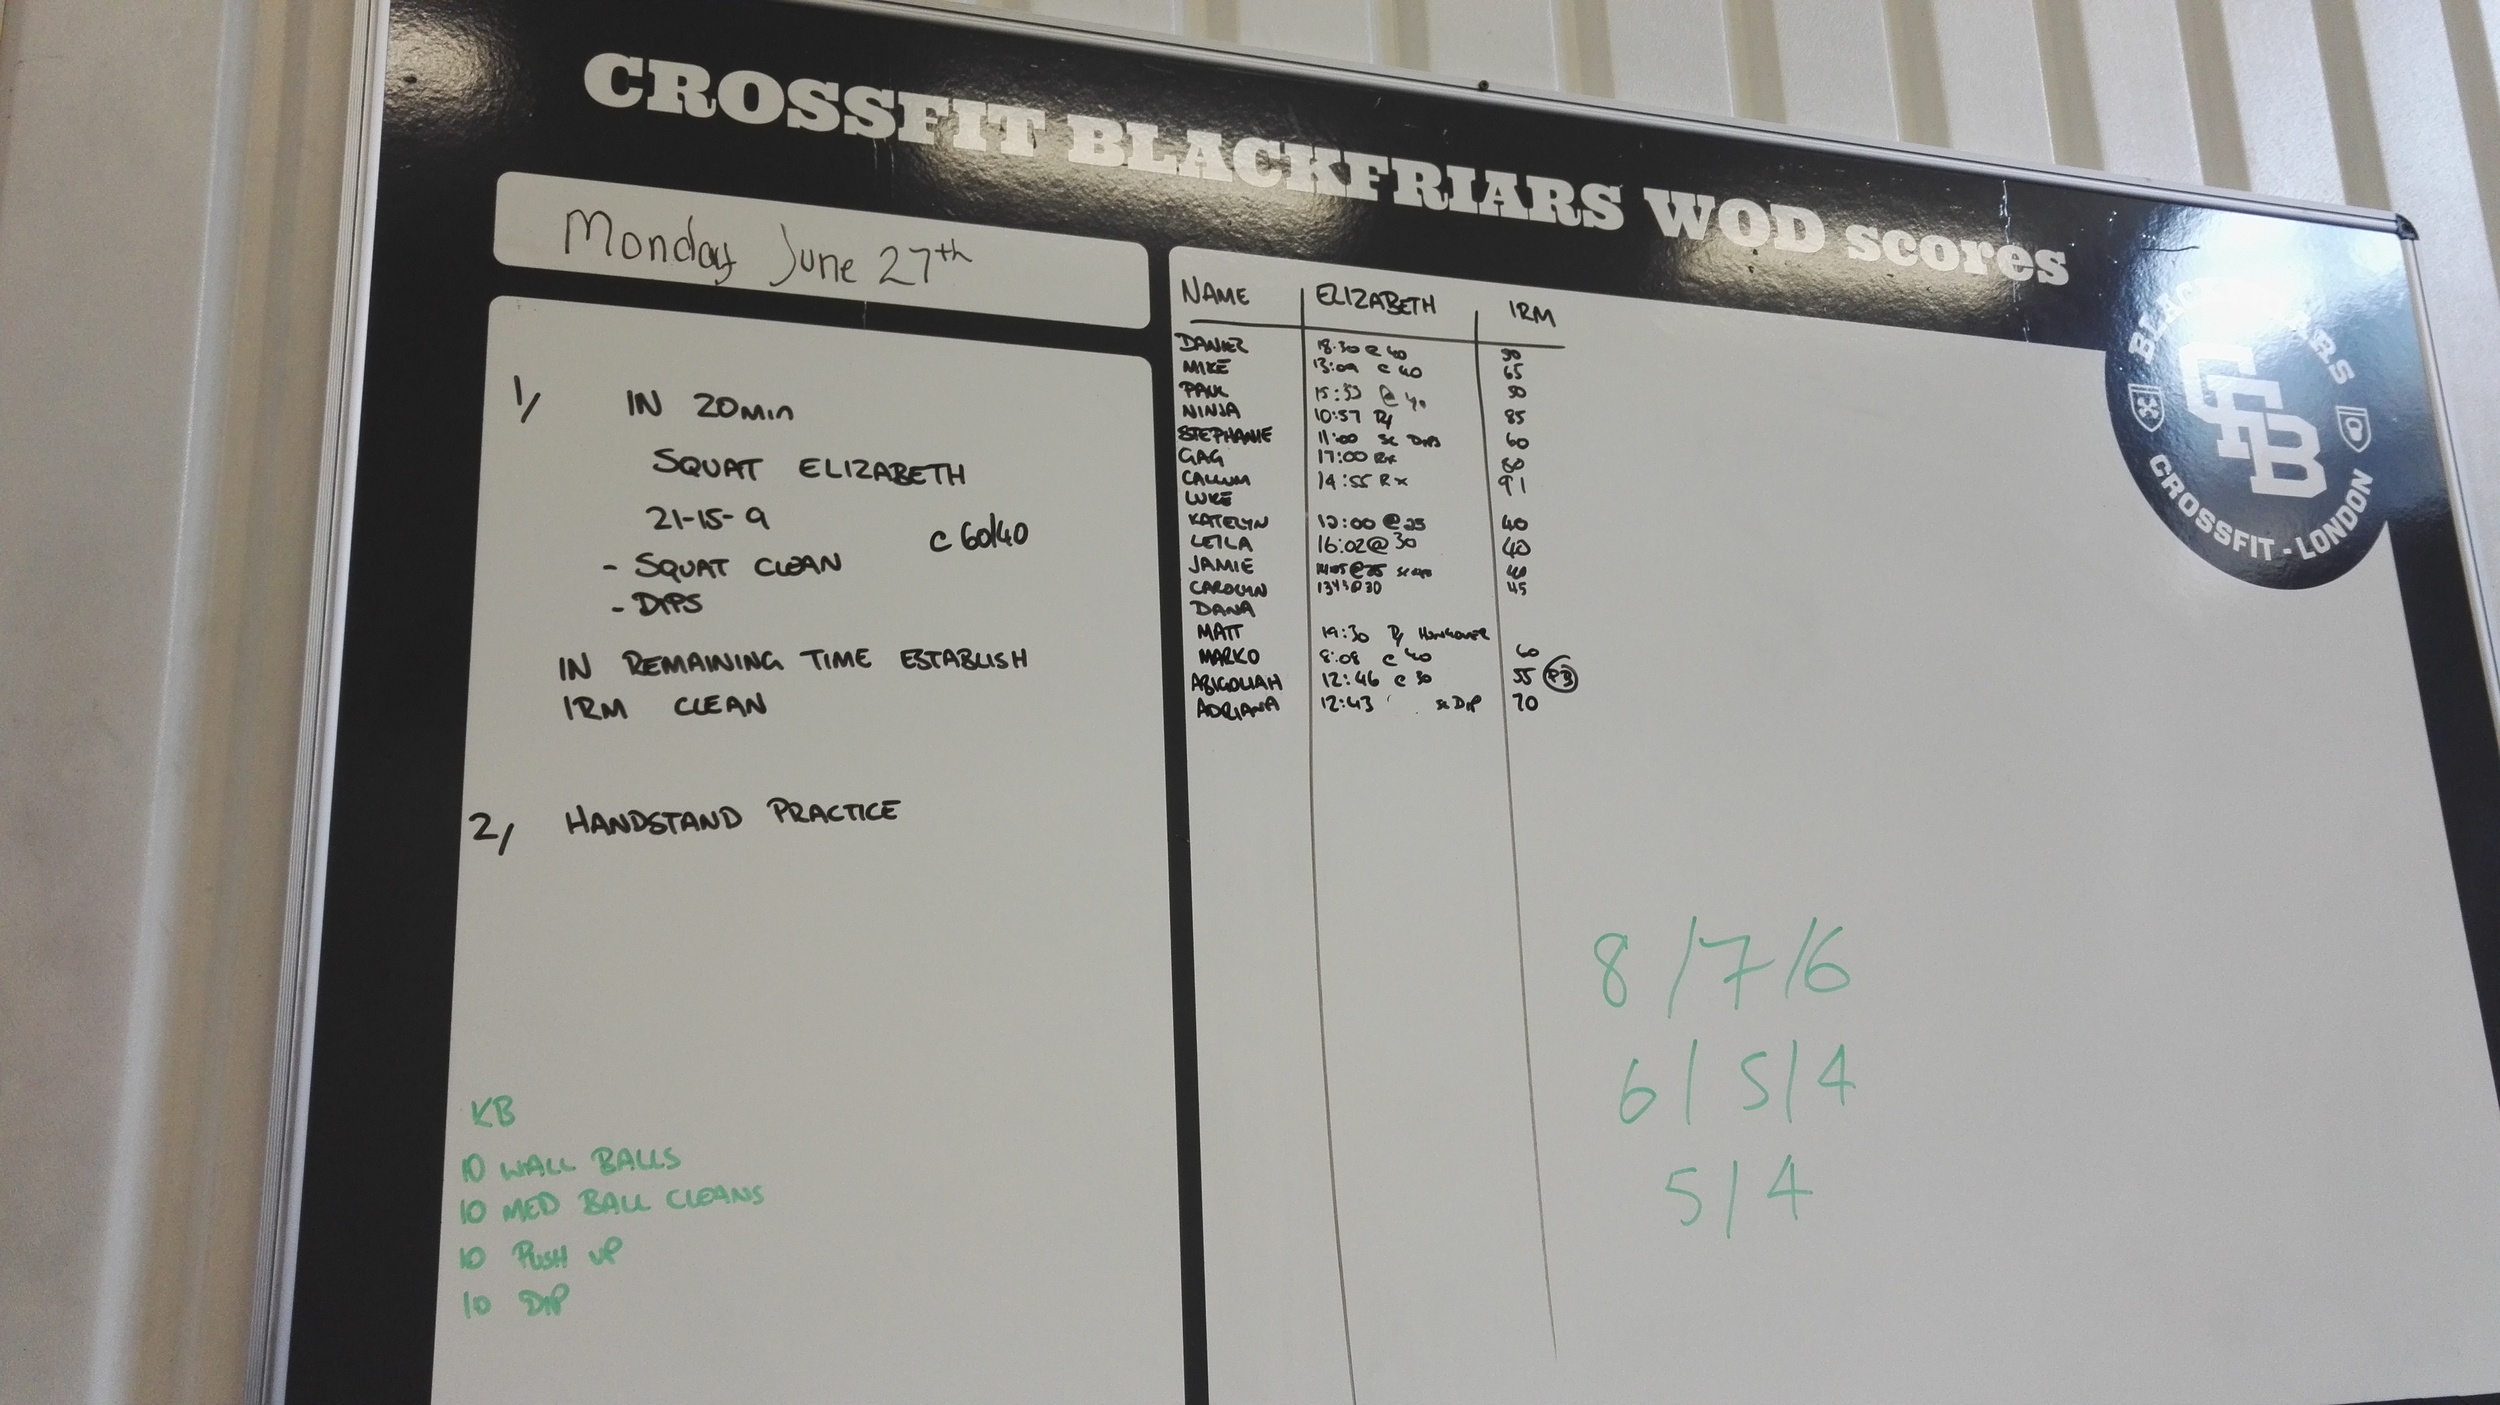 CROSSFIT BLACKFRIARS WOD scores
Monday June 27th
1/ IN 20min
SQUAT ELIZABETH
21-15-9
- SQUAT CLEAN c 60/40
- DIPS
IN REMAINING TIME ESTABLISH
1RM CLEAN
2/ HANDSTAND PRACTICE
KB
10 WALL BALLS
10 MED BALL CLEANS
10 PUSH UP
10 DIP
NAME ELIZABETH 1RM
DANIEL 18:30 @ 40
MIKE 13:09 c 40 65
PAUL @ 40 50
NINJA 10:57 Rx 85
STEPHANIE 11:00 Sc DIPS 60
GAG 17:00 Rx 80
CALLUM 14:55 Rx 91
LUKE
KATELYN @25 40
LEILA 16:02@30 40
JAMIE @25 40
CAROLYN @30 45
DANA
MATT 19:30 Rx HUNGOVER
MARKO 8:08 c 40 60
12:46 c 30 55 PB
ADRIANA 12:43 Sc DIP 70
8/7/6
6/5/4
5/4
BLACKFRIARS
CFB
CROSSFIT - LONDON